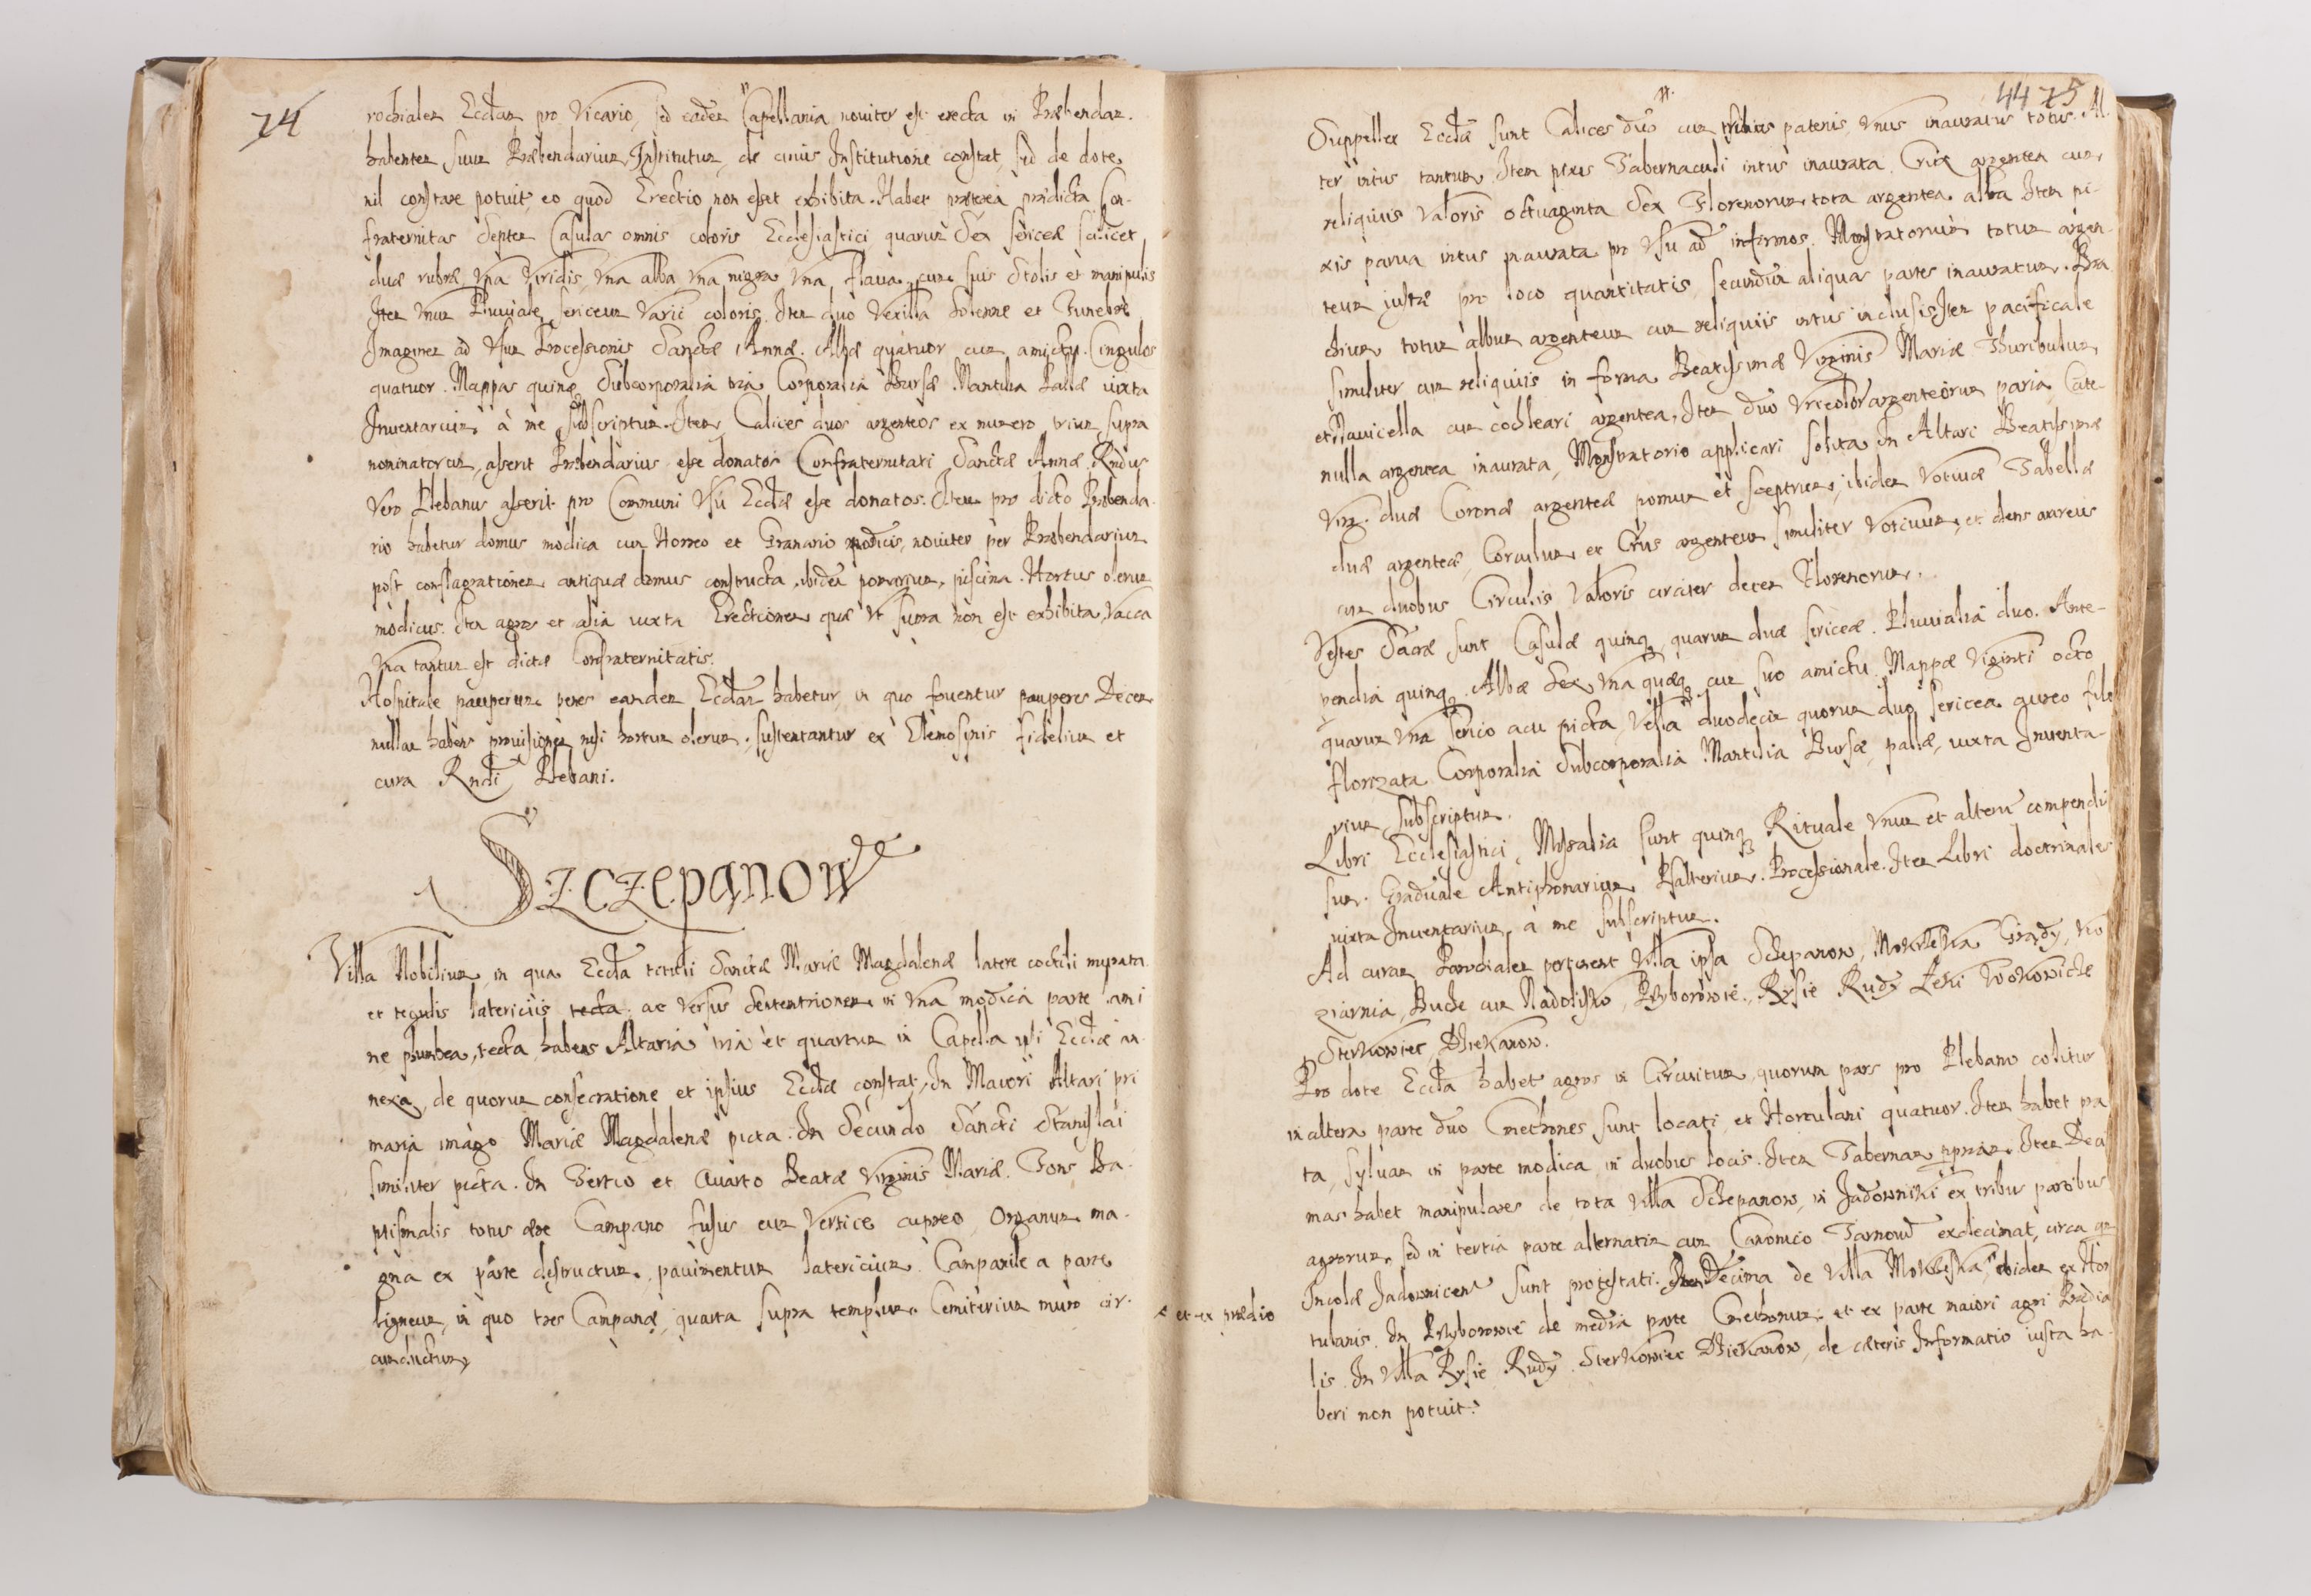 74
rochialem Eccliam pro Vicario, sed eadem Capellania noviter est erecta in Præbendam.
habentem suum Præbendarium, Institutum, de cuius Institutione constat, sed de dote
nil constare potuit, eo quod Erectio non esset exhibita. Habet præterea prædicta Con-
fraternitas Septem Casulas omnis coloris Ecclesiastici quarum Sex sericeæ scilicet
duæ rubræ, Vna Viridis, Vna alba Vna nigra Vna flava, cum suis Stolis et manipulis
Item Vnum Pluviale sericeum Varii coloris. Item duo Vexilla Solenne et Funebre
Imagines ad Vsum Processionis Sanctæ Annæ. Albæ quatuor cum amictu. Cingulos
quatuor. Mappas quinq Subcorporalia tria Corporalia Bursæ Mantilia Pallæ iuxta
Inventarium à me subscriptum. Item Calices duos argenteos ex numero trium supra
nominatorum, asserit Præbendarius esse donatos Confraternitati Sanctæ Annæ, Rndus
Vero Plebanus asserit pro Communi Vsu Eccliæ esse donatos. Item pro dicto Præbenda-
rio habetur domus modica cum Horreo et Granario modicis, noviter per Præbendarium
post conflagrationem antiquæ domus constructa, ibidem pomarium, piscina. Hortus olerum
modicus. Item agros et alia iuxta Erectionem quæ Vt supra non est exhibita, Vacca
Vna tantum est dictæ Confraternitatis.
Hospitale pauperum penes eandem Eccliam habetur, in quo foventur pauperes Decem
nullam habens provisionem nisi hortum olerum, sustentantur ex Elemosinis fidelium et
cura Rndi Plebani.
Szczepanow
Villa Nobilium, in qua Ecclia tituli Sanctæ Mariæ Magdalenæ latere coctili murata
et tegulis latericiis tecta ac versus Sententrionem in Vna modica parte lami
ne plumbea, tecta, habens Altaria tria et quartum in Capella ipsi Eccliæ an-
nexa, de quorum consecratione et ipsius Eccliæ constat, In Maiori Altari pri
maria imago Mariæ Magdalenæ picta. In Secundo Sancti Stanislai
similiter picta. In Tertio et Quarto Beatæ Virginis Mariæ. Fons Ba-
ptismalis totus ære Campano fusus cum Vertice cupreo, Organum ma-
gna ex parte destructum, pavimentum latericium. Campanile a parte
ligneum, in quo tres Campanæ, quarta supra templum. Cemiterium muro cir-
cumductum,
44 75
Suppellex Eccliæ sunt Calices duo cum tribus patenis, Vnus inauratus totus. Al-
ter intus tantum. Item pixis Tabernaculi intus inaurata Crux argentea cum
reliquiis Valoris octuaginta Sex Florenorum tota argentea alba Item pi-
xis parva intus inaurata pro Vsu ad infirmos. Monstratorium totum argen-
teum iustæ pro loco quantitatis, secundum aliquas partes inauratum. Bra
chium totum album argenteum cum reliquiis intus inclusis, Item pacificale
similiter cum reliquiis in forma Beatissimæ Virginis Mariæ Thuribulum
et Navicella cum cochleari argentea, Item duo Vrceolor argenteorum paria, Cate-
nulla argentea inaurata, Monstratorio applicari solita. In Altari Beatissimæ
Virg. duæ Coronæ argenteæ pomum et sceptrum, ibidem votivæ Tabellæ
duæ argenteæ, Corculum et Crus argenteum similiter Votivum, et dens aureus
cum duobus Circulis Valoris circiter decem Florenorum.
Vestes Sacræ sunt Casulæ quinq quarum duæ sericeæ. Pluvialia duo. Ante-
pendia quinq. Albæ Sex, Vna quæq cum suo amictu. Mappæ Viginti octo
quarum Vna serico acu picta, Vella duodecim quorum duo sericea aureo filo
florizata Corporalia Subcorporalia Mantilia Bursæ, pallæ, iuxta Inventa-
rium subscriptum.
Libri Ecclesiastici, Missalia sunt quinq Rituale Vnum et alterū compendio
sum. Graduale Antiphonarium Psalterium. Processionale. Item Libri doctrinales
iuxta Inventarium à me subscriptum.
Ad curam Parochialem pertinent Villa ipsa Sczepanow, Mokrziska Grądy, Wo
Bucze cum Nadolisko, Przyborowie, Rysie Rudy Łęki Wokowicze
Sterkowiec, Dziekanow.
Pro dote Ecclia habet agros in Circuitum, quorum pars pro Plebano colitur
in altera parte duo Cmethones sunt locati, et Hortulani quatuor. Item habet pra
ta, sylvam in parte modica in duobus locis. Item Tabernam propriam. Item Deci
mas habet manipulares de tota Villa Sczepanow, in Jadowniki ex tribus partibus
agrorum, sed in tertia parte alternatim cum Canonico Tarnowi exdecimat, circa
Incolæ Jadownicens sunt protestati. Decima de Villa Mokrziska, ibidem ex Hor
+ et ex prædio
tulanis. In Przyborowie de media parte Cmethonum, et ex parte maiori agri Prædia
lis. In Villa Rysie Rudy. Sterkowiec Dziekanow, de cæteris Informatio iusta ha-
beri non potuit.